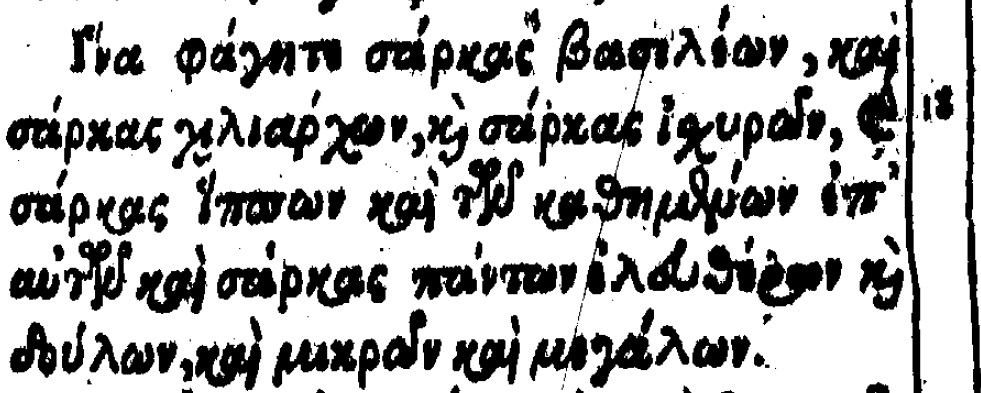 Ἵνα φάγητε σάρκας βασιλέων, καὶ
σάρκας χιλιάρχων, κ̀ σάρκας ἰχυρῶν, κ̀ 18
σάρκας ἵππων καὶ τῶν καθημένων ἐπ'
αὐτῶν καὶ σάρκας πάντων ἐλευθέρων κ̀
δούλων, καὶ μικρῶν καὶ μεγάλων.